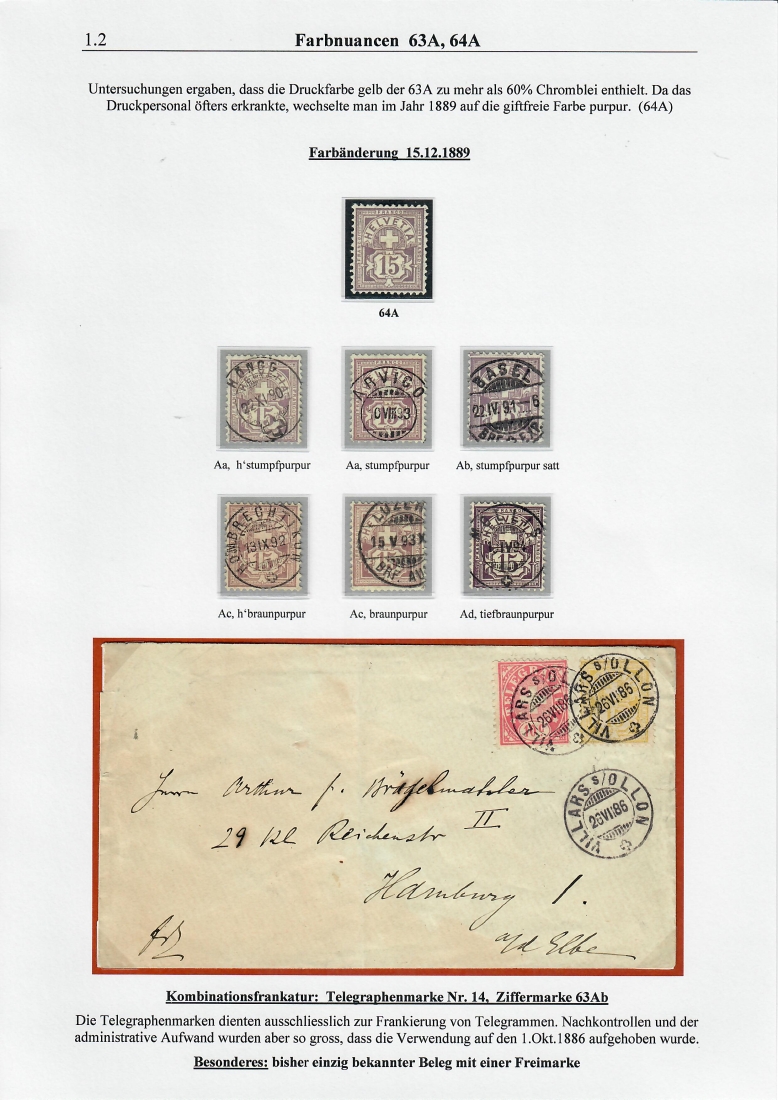 1.2 Farbnuancen 63A, 64A
Untersuchungen ergaben, dass die Druckfarbe gelb der 63A zu mehr als 60% Chromblei enthielt. Da das
Druckpersonal öfters erkrankte, wechselte man im Jahr 1889 auf die giftfreie Farbe purpur. (64A)
Farbänderung 15.12.1889
FRANCO
HELVETIA
15
64A
HÖNGG
XI.90
15
ARVIGO
VIII 93
15
BASEL
22.IV.91.-6
Aa, h‘stumpfpurpur
Aa, stumpfpurpur
Ab, stumpfpurpur satt
HOMBRECHTIKON
13 IX 92
15
LUZERN
15 V 93 X
15
IV 94
15
Ac, h‘braunpurpur
Ac, braunpurpur
Ad, tiefbraunpurpur
VILLARS s/OLLON
26 VI 86
VILLARS s/OLLON
26 VI 86
VILLARS s/OLLON
26 VI 86
Herrn Arthur
29 Kl Reichenstr II
Hamburg 1.
a/d Elbe
Kombinationsfrankatur: Telegraphenmarke Nr. 14, Ziffermarke 63Ab
Die Telegraphenmarken dienten ausschliesslich zur Frankierung von Telegrammen. Nachkontrollen und der
administrative Aufwand wurden aber so gross, dass die Verwendung auf den 1.Okt.1886 aufgehoben wurde.
Besonderes: bisher einzig bekannter Beleg mit einer Freimarke